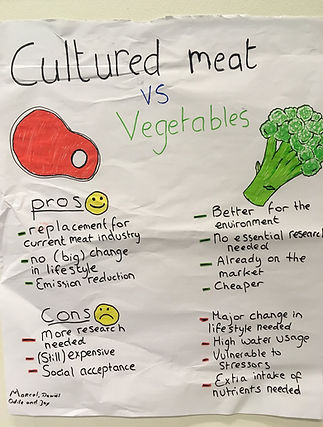 Cultured meat
VS
Vegetables
pros
- replacement for
current meat industry
- no (big) change
in lifestyle
- Emission reduction
- Better for the
environment
- No essential research
needed
- Already on the
market
- Cheaper
Cons
- More research
needed
- (Still) expensive
- Social acceptance
- Major change in
lifestyle needed
- High water usage
- Vulnerable to
stressors
- Extra intake of
nutrients needed
Marcel,
Odile and Jay